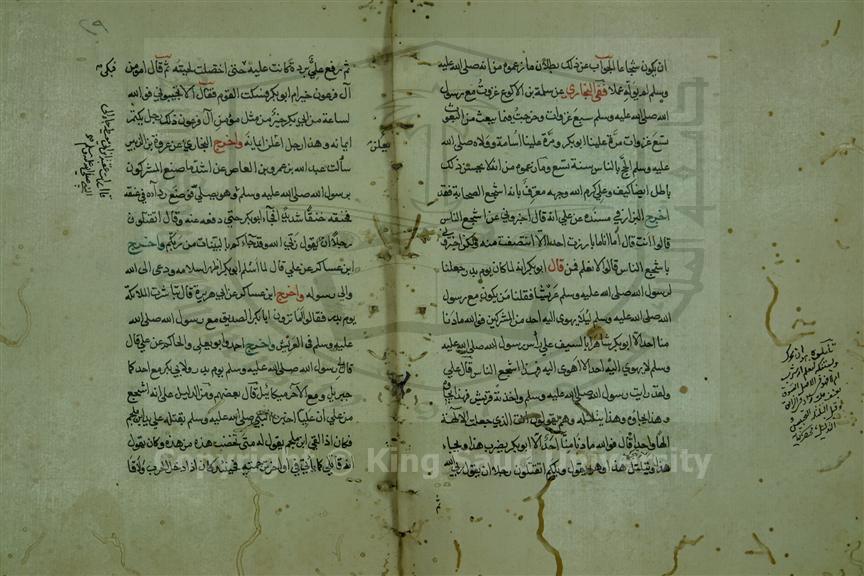 ان يكون شجاعا الجواب عن ذلك بطلان ما زعموه من انه صلى الله عليه
وسلم لم يوله عملا ففي البخاري عن سلمة بن الاكوع غزوت مع رسول
صلى الله عليه وسلم سبع غزوات وخرجت فيما يبعث من البعوث
تسع غزوات مرة علينا ابوبكر ومرة علينا اسامة وولاه صلى الله
عليه وسلم الحج بالناس سنة تسع وما زعموه من انه لا يحسن ذلك
باطل ايضا كيف وعلي كرم الله وجهه معترف بانه اشجع الصحابة فقد
اخرج البزار في مسنده عن علي انه قال اخبروني عن اشجع الناس
قالوا انت قال اما انا ما بارزت احدا الا انتصفت منه ولكن اخبروني
باشجع الناس قالوا لا نعلم فمن قال ابوبكر انه لما كان يوم بدر جعلنا
لرسول الله صلى الله عليه وسلم عريشا فقلنا من يكون مع رسول
الله صلى الله عليه وسلم ليلا يهوي اليه احد من المشركين فوالله ما دنا
منا احد الا ابوبكر شاهرا بالسيف على رأس رسول الله صلى الله عليه
وسلم لا يهوي اليه احد الا اهوى اليه فهذا اشجع الناس قال علي
ولقد رايت رسول الله صلى الله عليه وسلم واخذته قريش فهذا
وهذا يتلتله وهم يقولون انت الذي جعلت الالهة
الها واحدا قال فوالله ما دنا منا احد الا ابوبكر يضرب هذا ويجاء
هذا ويتلتل هذا وهو يقول ويلكم اتقتلون رجلا ان يقول ربي الله
٢٩
ثم رفع علي بردة كانت عليه حتى اخضلت لحيته ثم قال امؤمن
فبكى
آل فرعون خير ام ابوبكر فسكت القوم فقال الا تجيبوني فوالله
لساعة من ابي بكر خير من مثل مؤمن آل فرعون ذلك رجل يكتم
ايمانه وهذا رجل اعلن ايمانه واخرج البخاري عن عروة بن الزبير
سألت عبد الله بن عمرو بن العاص عن اشد ما صنع المشركون
برسول الله صلى الله عليه وسلم وهو يصلي فوضع رداءه في عنقه
فخنقه خنقا شديدا فجاء ابوبكر حتى دفعه عنه وقال اتقتلون
رجلا ان يقول ربي الله وقد جاءكم بالبينات من ربكم واخرج
ابن عساكر عن علي قال لما اسلم ابوبكر اظهر اسلامه ودعى الى الله
والى رسوله واخرج ابن عساكر عن ابي هريرة قال تباشرت الملائكة
يوم بدر فقالوا اما ترون ابابكر الصديق مع رسول الله صلى الله
عليه وسلم في العريش واخرج احمد وابو يعلى والحاكم عن علي قال
قال لي رسول الله صلى الله عليه وسلم يوم بدر ولابي بكر مع احدكما
جبريل ومع الآخر ميكائيل قال بعضهم ومن الدليل على انه اشجع
من علي ان عليا اخبره النبي صلى الله عليه وسلم بقتله على يد ابن ملجم
فكان اذا لقي ابن ملجم يقول له متى تخضب هذه من هذه وكان يقول
انه قاتلي كما ياتي في اواخر ترجمته فحينئذ كان اذا دخل الحرب ولاقا
Copyright © King Saud University